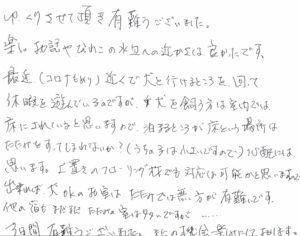 ゆっくりさせて頂き有難うございました。
楽しい お話やびわこの水辺への近かさは良かたです。
最近(コロナもあり)近くで犬と行けるところを、回って
休暇を遊んでいるのですが、犬を飼う方は室内では
床にされていると思いますので、泊まるところが床という場所は
たたけをすってしまわないか?(うちの子は小さいですので)心配には
思います。上置きのフローリング材でも対応は可能かと思いますので
出来れば、犬OKのお室は たたけでは無い方が 有難いです。
他の宿も まだまだ たたみの室は多々ですが ……
3日間 有難うございました。またの機会